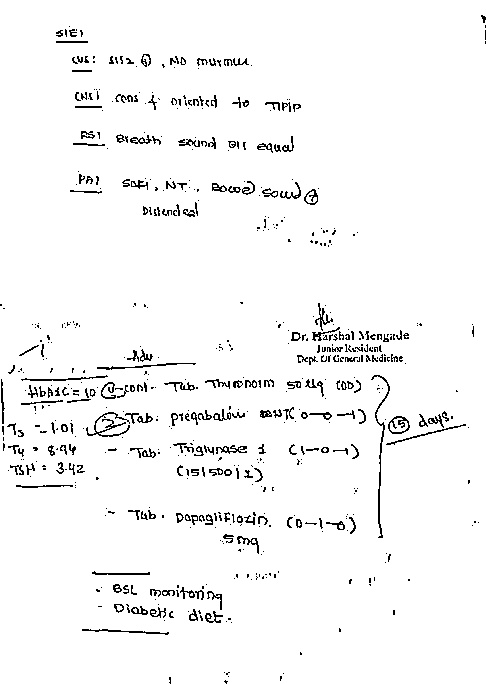 S/E:
CVS: S1S2 ⊕, NO murmur
CNS: cons & oriented to T/P/P
RS: Breath sound B/L equal
PA: Soft, NT, Bowel Sound ⊕
Distended
Dr. Harshal Mengade
Junior Resident
Dept. Of General Medicine
Adv
HbA1C = 10
T3 - 1.01
T4 = 8.94
TSH = 3.42
① cont - Tab. Thyronorm 50 ug (OD)
② Tab. pregabalin NT (0-0-1)
- Tab. Triglynase 1 (1-0-1)
(15/500/1)
- Tab. Dapagliflozin (0-1-0)
5mg
15 days.
- BSL monitoring
- Diabetic diet.